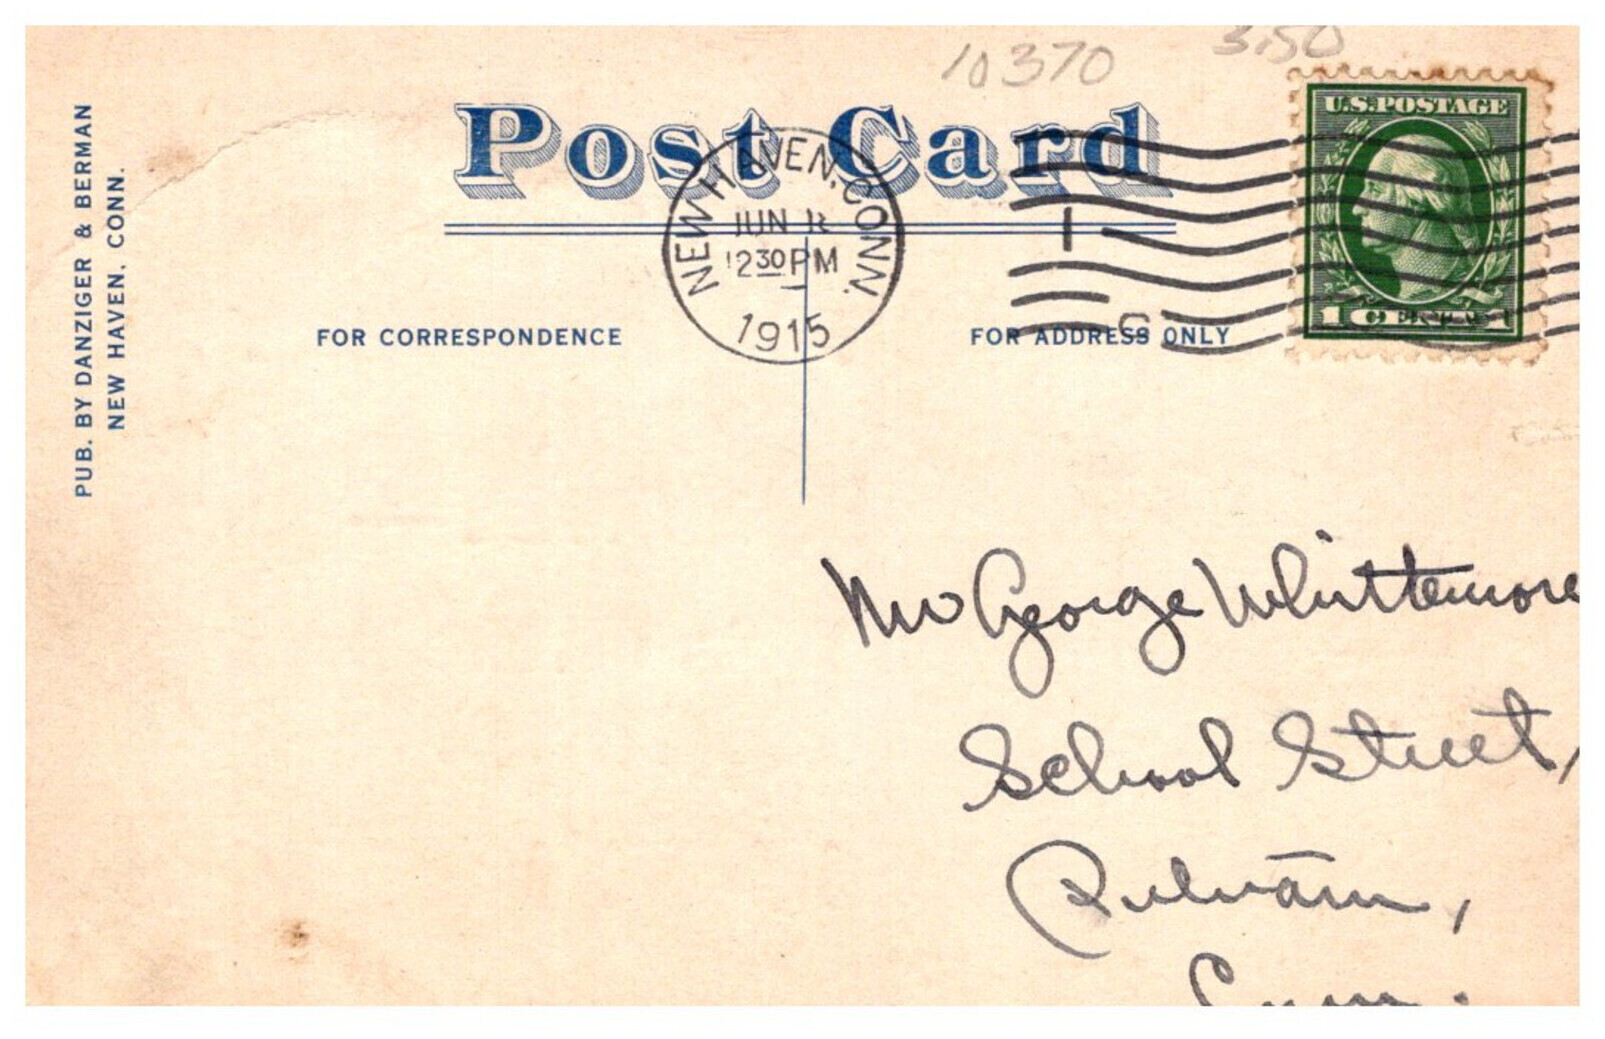 10370
3.50
PUB. BY DANZIGER & BERMAN
NEW HAVEN, CONN.
Post Card
NEW HAVEN, CONN.
JUN
12 30 PM
1915
1
C
U.S. POSTAGE
1 CENT 1
FOR CORRESPONDENCE
FOR ADDRESS ONLY
Mr George Whittemore
School Street,
Putnam,
Conn.